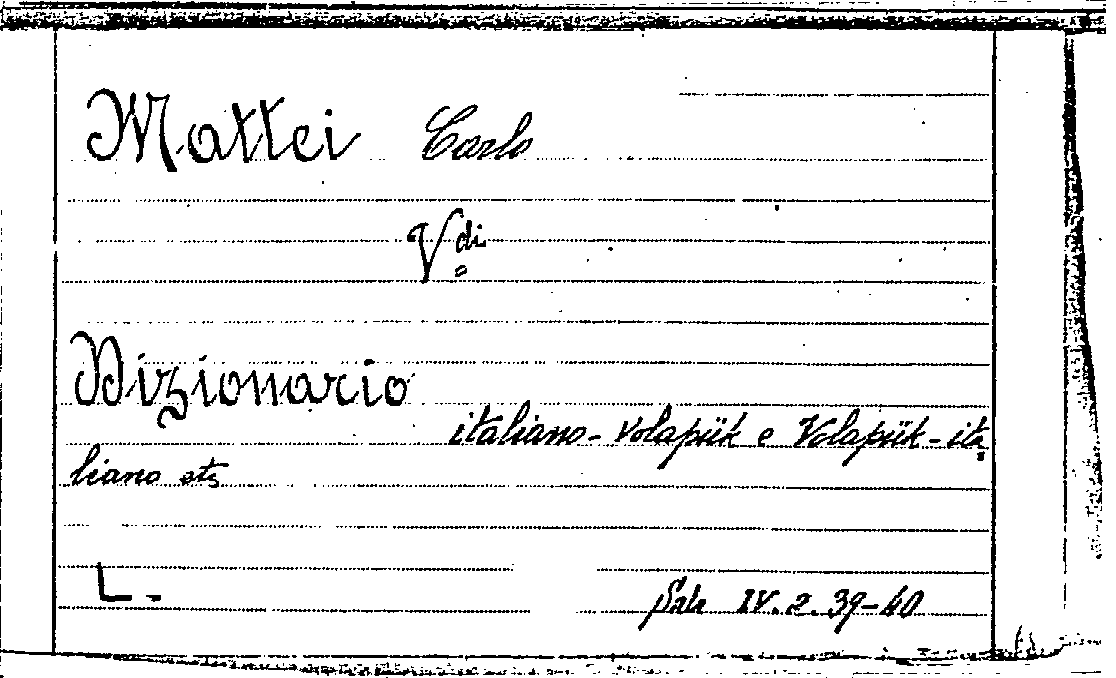 Mattei Carlo
Vdi
Dizionario
italiano - Volapük e Volapük - ita
liano etc
L -
Sala IV. 2. 39-40